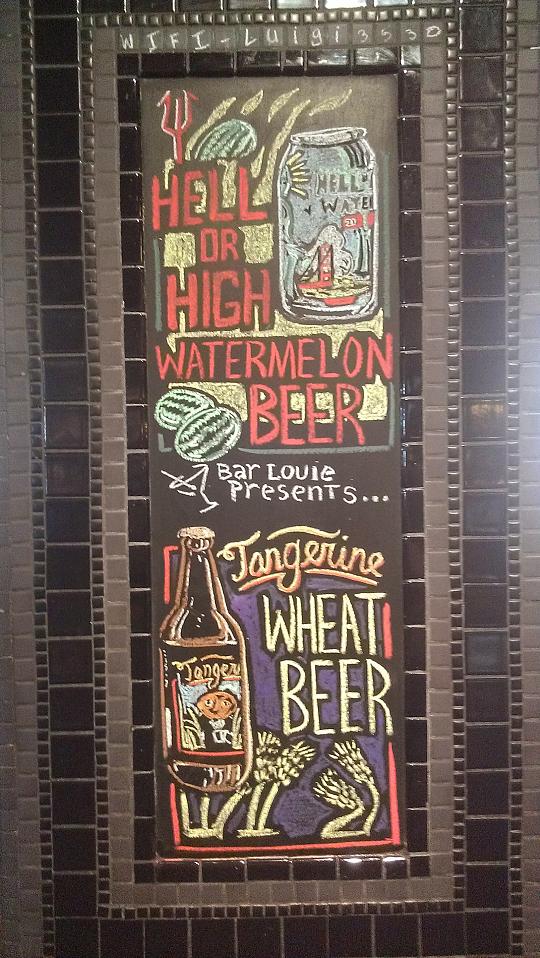 WIFI-Luigi3530
HELL
OR
HIGH
WATERMELON
BEER
HELL
WATE
Bar Louie
Presents...
Tangerine
WHEAT
BEER
Tanger